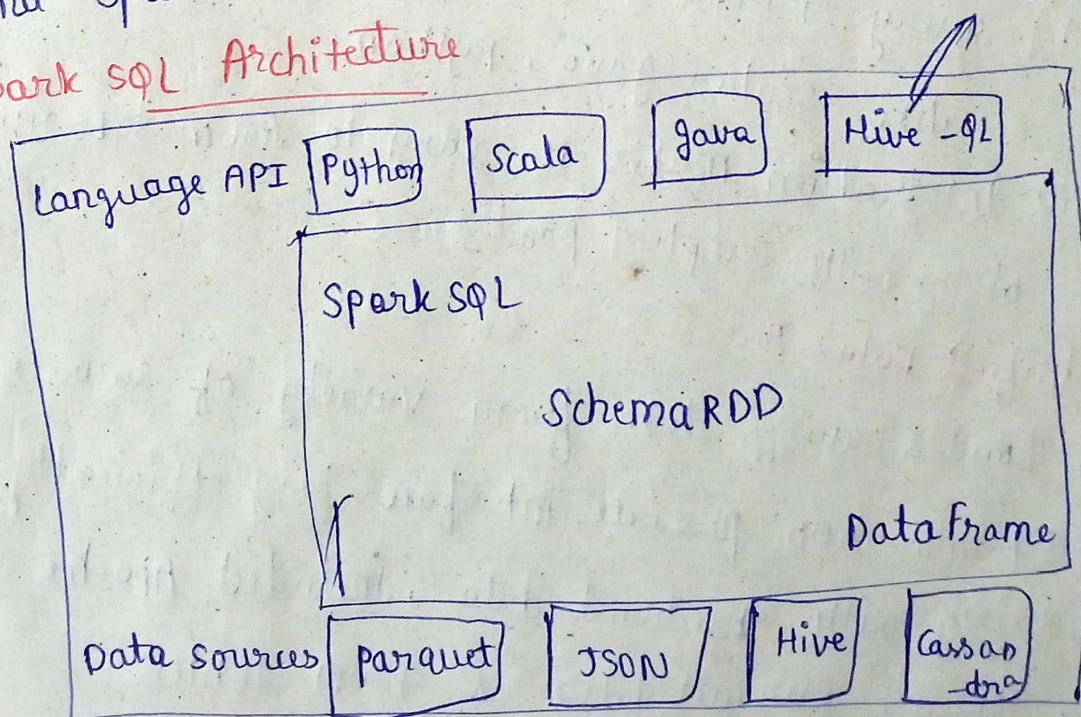 ark SQL Architecture
Language API Python Scala Java Hive-QL
Spark SQL
Schema RDD
Data Frame
Data Sources parquet JSON Hive Cassan
-dra